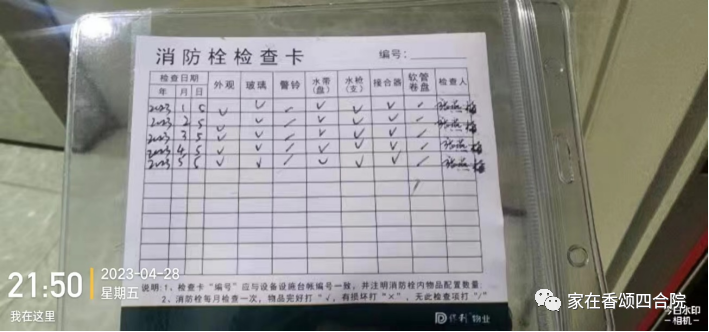 消防栓检查卡 编号:
检查日期 外观 玻璃 警铃 水带(盘) 水枪(支) 接合器 软管卷盘 检查人
年 月 日
2023 1 5 √ √ / √ √ √ /
2023 2 5 √ √ / √ √ √ /
2023 3 5 √ √ / √ √ √ /
2023 4 5 √ √ / √ √ √ /
2023 5 5 √ √ / √ √ √ /
说明:1、检查卡“编号”应与设备设施台帐编号一致，并注明消防栓内物品配置数量;
2、消防栓每月检查一次，物品完好打“√，有损坏打“×”，无此检查项打“/”
保利物业
21:50 2023-04-28
星期五
我在这里
家在香颂四合院
今日水印
-相机-